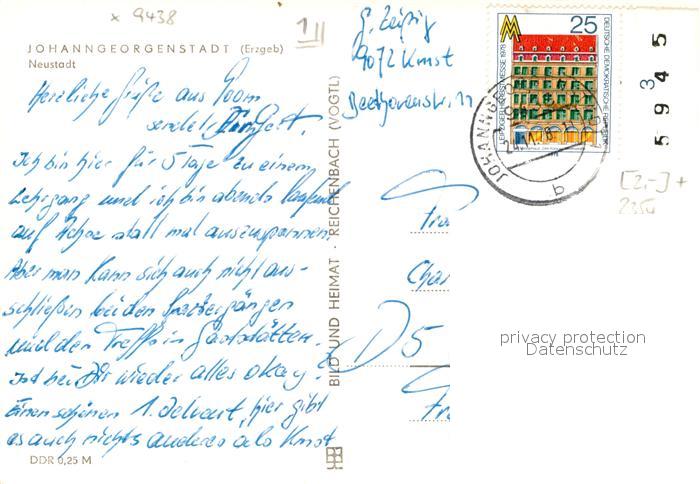 x 9438
JOHANNGEORGENSTADT (Erzgeb)
Neustadt
Herzliche Grüße aus
sendet
Ich bin hier für 5 Tage zu einem
Lehrgang und ich bin abends laufend
auf Achse statt mal auszuspannen.
Aber man kann sich auch nicht aus-
schließen bei den Spaziergängen
und den Treffs in Gaststätten.
Ist bei Dir wieder alles okay?
Einen schönen 1. Advent, hier gibt
es auch nichts anderes als Kmst
DDR 0,25 M
BILD UND HEIMAT · REICHENBACH (VOGTL)
G. Zeißig
9072 Kmst
Beethovenstr. 11
25
DEUTSCHE DEMOKRATISCHE REPUBLIK
LEIPZIGER HERBSTMESSE 1978
JOHANNG
b
5 9 4 5
3
[2,-] +
D 5
Cha
privacy protection
Datenschutz